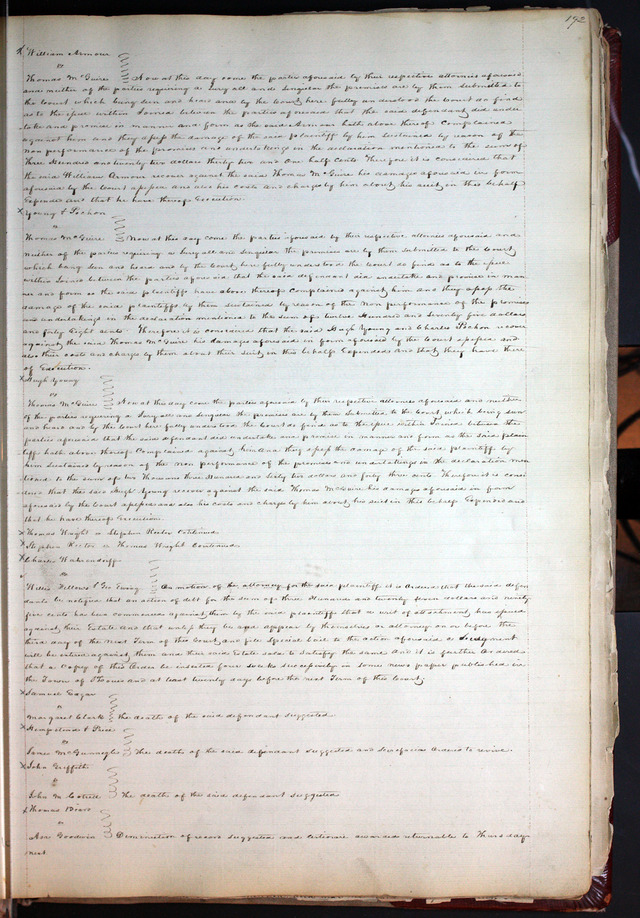 192
x William Armour
vs
Thomas McGuire Now at this day come the parties aforesaid by their respective attornies aforesaid
and neither of the parties requiring a Jury all and Singular the premises are by them submitted to
the Court which being seen and heard and by the Court here fully understood the Court do find
as to the issue within Joined between the parties aforesaid that the said defendant did under
take and promise in manner and form as the said Armour hath above thereof Complained
against him and they assess the damage of the said plaintiff by him sustained by reason of the
non performance of the promises and undertakings in the declaration mentioned to the sum of
Three Hundred and twenty two dollars thirty two and One half Cents Therefore it is considered that
the said William Armour recover against the said Thomas McGuire his damages aforesaid in form
aforesaid by the Court assessed and also his costs and charges by him about his suit in this behalf
Expended and that he have thereof Execution
x Young & Pschon
vs
Thomas McGuire Now at this day come the parties aforesaid by their respective attornies aforesaid and
neither of the parties requiring a Jury all and Singular the premises are by them submitted to the Court
which being seen and heard and by the Court here fully understood the Court do find as to the issue
within Joined between the parties aforesaid that the said defendant did undertake and promise in man
ner and form as the said plaintiffs have above thereof Complained against him and they assess the
damage of the said plaintiffs by them sustained by reason of the Non performance of the promises
and undertakings in the declaration mentioned to the sum of twelve Hundred and Seventy five dollars
and forty Eight cents. Therefore it is considered that the said Hugh Young and Charles Pschon recover
against the said Thomas McGuire his damages aforesaid in form aforesaid by the Court assessed and
also their costs and charges by them about their suit in this behalf Expended and that they have there
of Execution.
x Hugh Young
vs
Thomas McGuire Now at this day come the parties aforesaid by their respective attornies aforesaid and neither
of the parties requiring a Jury all and singular the premises are by them Submitted to the Court which being seen
and heard and by the Court here fully understood the Court do find as to the issue within Joined between the
parties aforesaid that the said defendant did undertake and promise in manner and form as the said plain
tiff hath above thereof Complained against him and they assess the damage of the said plaintiff by
him Sustained by reason of the non performance of the promises and undertakings in the declaration men
tioned to the sum of two Thousand three Hundred and Sixty two dollars and forty three cents Therefore it is consi
dered that the said Hugh Young recover against the said Thomas McGuire his damages aforesaid in form
aforesaid by the Court assessed and also his costs and charges by him about his suit in this behalf Expended and
that he have thereof Execution.
x Thomas Wright vs Stephen Rector Continued
x Stephen Rector vs Thomas Wright Continued
x Charles Wahrendorff
vs
Willis Fellows & Geo Ewing On motion of the attorney for the said plaintiff it is Ordered that the said defen
dants be notified that an action of debt for the sum of three Hundred and twenty seven dollars and ninety
five cents has been commenced against them by the said plaintiff that a writ of attachment has issued
against their Estate and that unless they be and appear by themselves or attorney on or before the
third day of the next Term of this Court and file Special bail to the action aforesaid Judgment
will be entered against them and their said Estate sold to Satisfy the same and it is further Ordered
that a Copy of this Order be inserted four weeks Successively in some news paper published in
the Town of St Louis and at least twenty days before the next Term of this Court.
x Samuel Gazar
vs
Margaret Clark the death of the said defendant suggested
x Hempstead & Price
vs
James McGunnegle The death of the said defendant suggested and Scirefacias Ordered to revive.
x John Griffith
vs
John M Cotrell The death of the said defendant suggested
x Thomas
vs
Asa Goodwin Diminution of record suggested and certiorari awarded returnable to Thursday
next